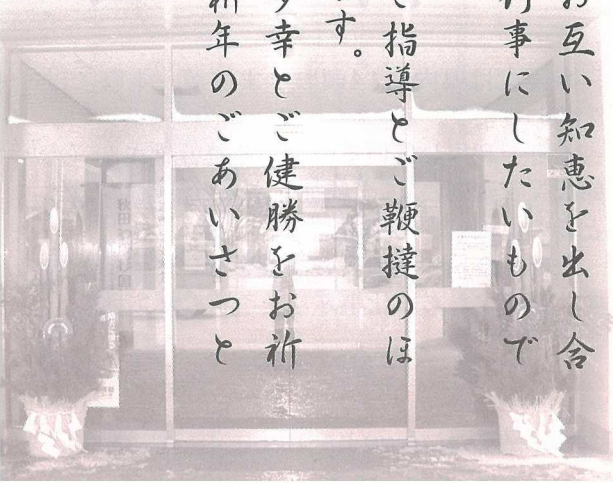 お互い知恵を出し合
行事にしたいもので
ご指導とご鞭撻のほ
す。
多幸とご健勝をお祈
新年のごあいさつと